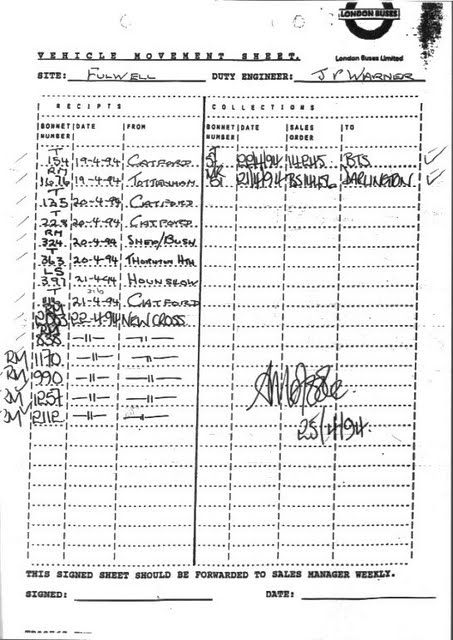 LONDON BUSES
VEHICLE MOVEMENT SHEET.
London Buses Limited
SITE: FULWELL DUTY ENGINEER: J P WARNER
RECIPTS COLLECTIONS
BONNET NUMBER DATE FROM BONNET NUMBER DATE SALES ORDER TO
T 154 19-4-94 CATFORD T BTS
RM 1676 19-4-94 TOTTENHAM 21/4/94 DARLINGTON
T 135 20-4-94 CATFORD
T 228 20-4-94 CATFORD
RM 324 20-4-94 SHEP/BUSH
T 363 20-4-94 THORNTON HTH
LS 397 21-4-94 HOUNSLOW
T 21-4-94 CATFORD
22-4-94 NEW CROSS
RM 838 -11- -11-
RM 1170 -11- -11-
RM 990 -11- -11-
RM 1257 -11- -11-
RM 2112 -11- -11-
25/4/94.
THIS SIGNED SHEET SHOULD BE FORWARDED TO SALES MANAGER WEEKLY.
SIGNED: DATE: